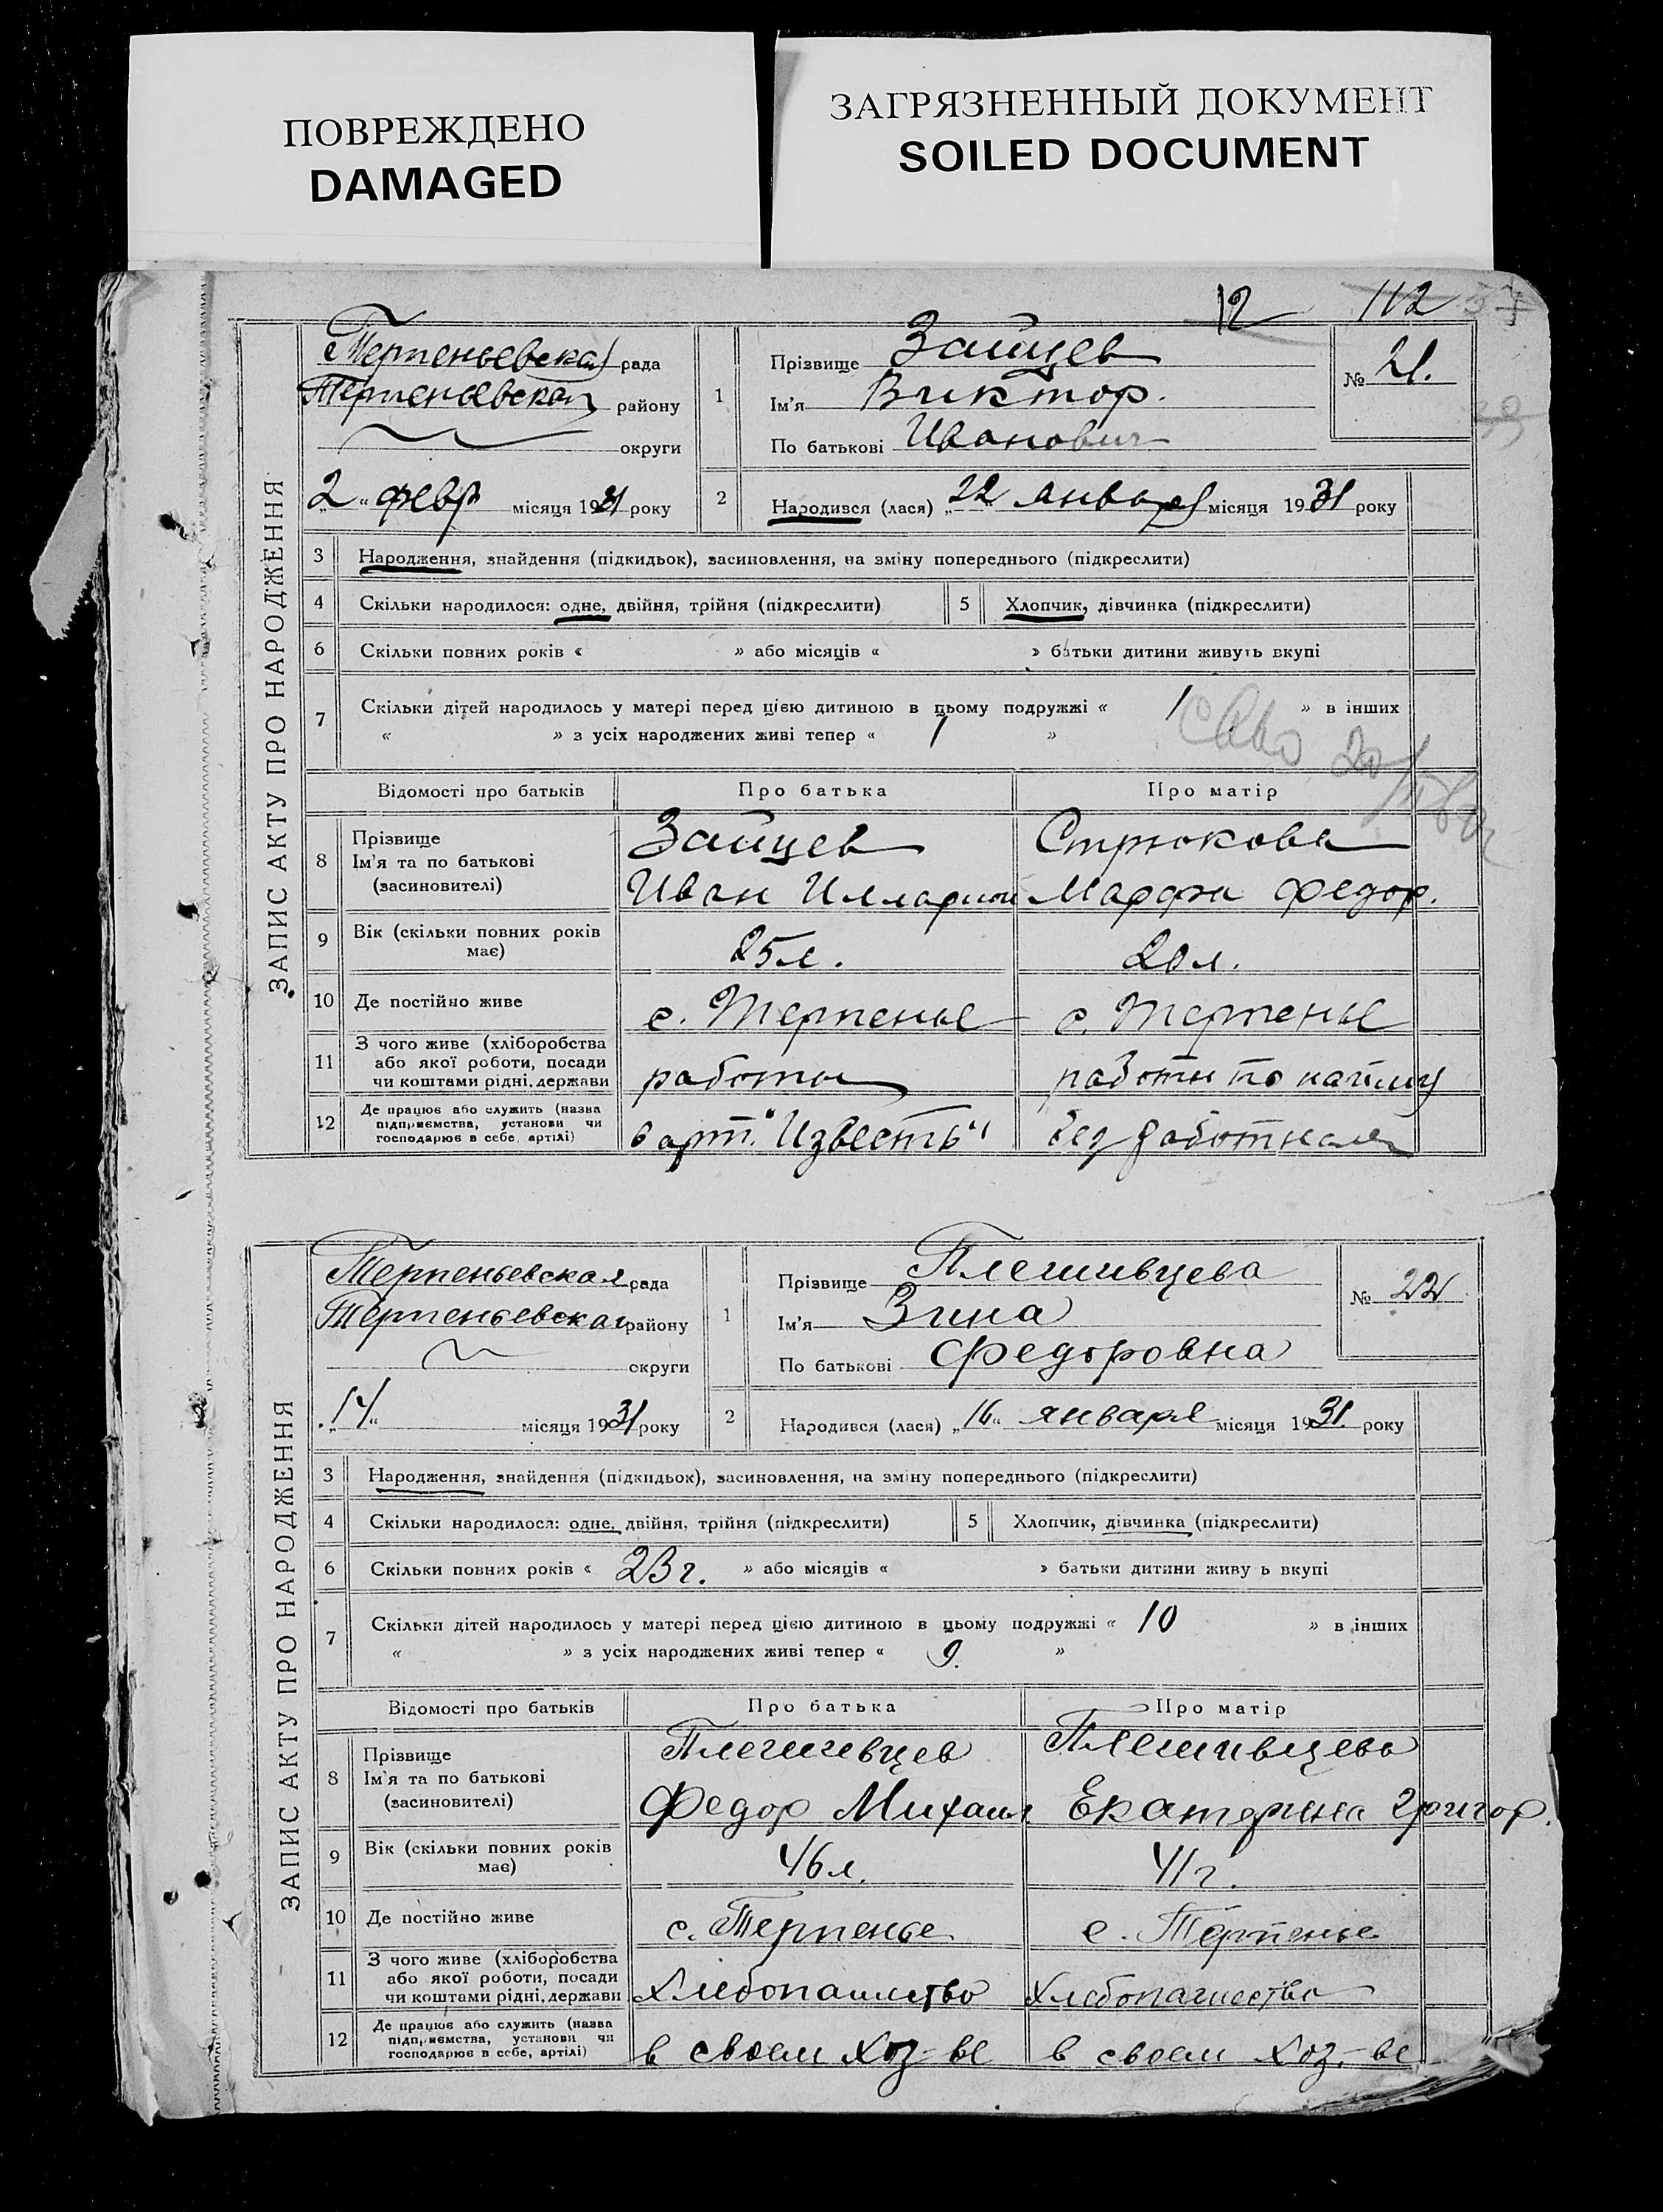 ПОВРЕЖДЕНО
DAMAGED
ЗАГРЯЗНЕННЫЙ ДОКУМЕНТ
SOILED DOCUMENT
12 112
ЗАПИС АКТУ ПРО НАРОДЖЕННЯ
Терпеньевская рада
Терпеньевская району
округи
2 " февр місяця 1931 року
1
Прізвище Зайцев
Ім'я Виктор.
По батькові Иванович
№ 21.
2
Народився (лася) „ 22 " января місяця 1931 року
3 Народження, знайдення (підкидьок), засиновлення, на зміну попереднього (підкреслити)
4 Скільки народилося: одне, двійня, трійня (підкреслити) 5 Хлопчик, дівчинка (підкреслити)
6 Скільки повних років « » або місяців « » батьки дитини живуть вкупі
7 Скільки дітей народилось у матері перед цією дитиною в цьому подружжі « 1 » в інших
« » з усіх народжених живі тепер « 1 »
Відомості про батьків Про батька Про матір
8 Прізвище Ім'я та по батькові (засновителі)
Зайцев Стрюкова
Иван Илларион Марфа Федор.
9 Вік (скільки повних років має) 25 л. 20 л.
10 Де постійно живе с. Терпенье с. Терпенье
11 З чого живе (хліборобства або якої роботи, посади чи коштами рідні, держави работы работы по найму
12 Де працює або служить (назва підприємства, установи чи господарює в себе, артілі) в арт. "Известь" безработная
ЗАПИС АКТУ ПРО НАРОДЖЕННЯ
Терпеньевская рада
Терпеньевская району
округи
„ 14 " місяця 1931 року
1
Прізвище Плешивцева
Ім'я Зина
По батькові Федоровна
№ 22
2
Народився (лася) „ 16 " января місяця 1931. року
3 Народження, знайдення (підкидьок), засиновлення, на зміну попереднього (підкреслити)
4 Скільки народилося: одне, двійня, трійня (підкреслити) 5 Хлопчик, дівчинка (підкреслити)
6 Скільки повних років « 23 г. » або місяців « » батьки дитини живу ь вкупі
7 Скільки дітей народилось у матері перед цією дитиною в цьому подружжі « 10 » в інших
« » з усіх народжених живі тепер « 9. »
Відомості про батьків Про батька Про матір
8 Прізвище Ім'я та по батькові (засиновителі)
Плешивцев Плешивцева
Федор Михаил Екатерина Григор.
9 Вік (скільки повних років має) 46 л. 41 г.
10 Де постійно живе с. Терпенье с. Терпенье
11 З чого живе (хліборобства або якої роботи, посади чи коштами рідні, держави Хлебопашество Хлебопашество
12 Де працює або служить (назва підприємства, установи чи господарює в себе, артілі) в своем хоз-ве в своем хоз.-ве